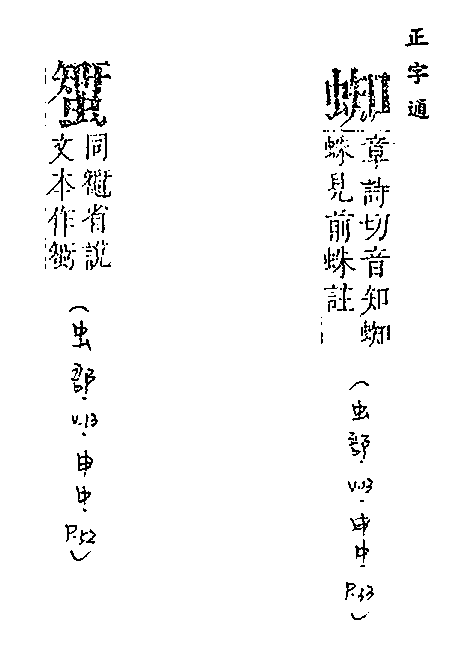 正字通
蜘
章詩切音知蜘
蛛見前蛛註
(虫部.V.13.申中.P.53)
同鼅省說
文本作
(虫部.V.13.申中.P.52)